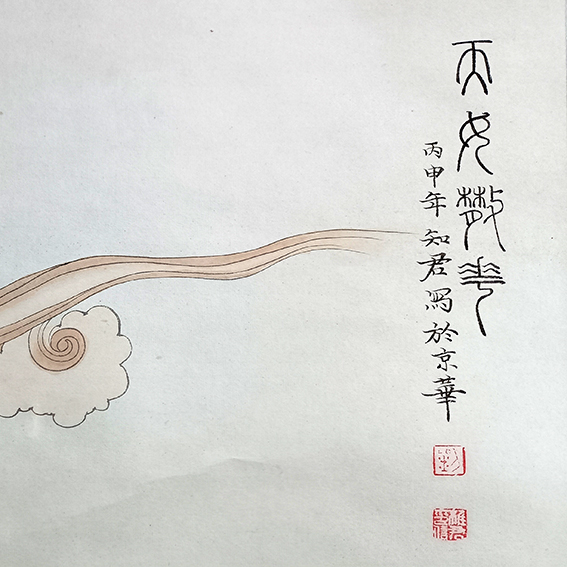 天女散花
丙申年知君寫於京華